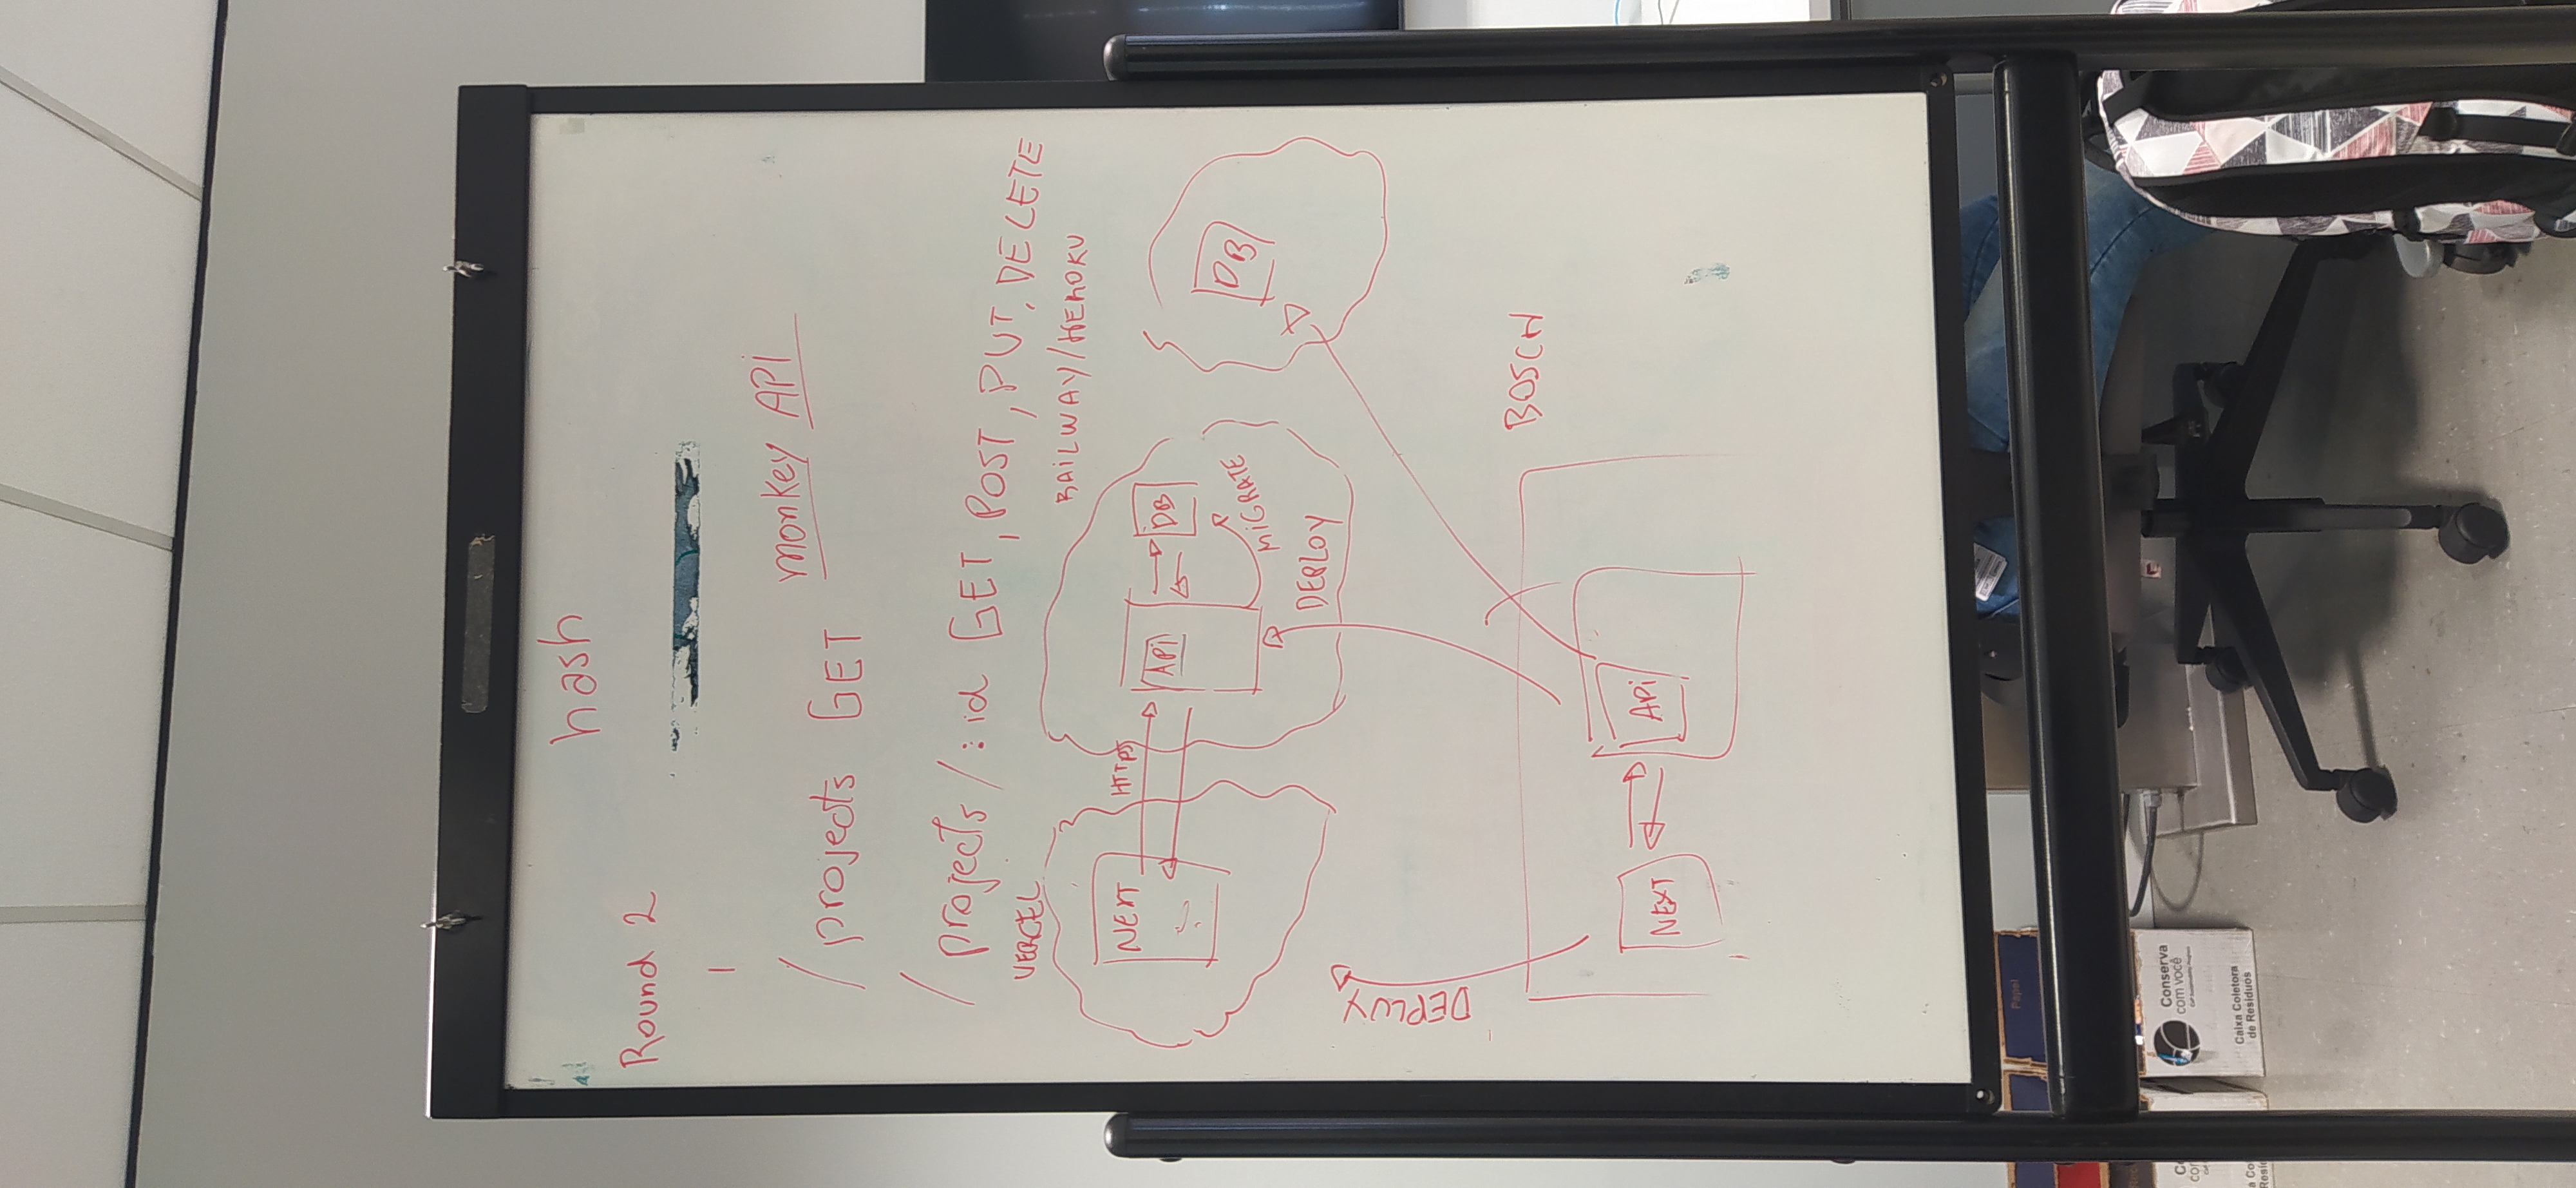 hash
Round 2
monkey API
/projects GET
/projects/:id GET, POST, PUT, DELETE
VERCEL
RAILWAY/HEROKU
NEXT
HTTPS
API
DB
MIGRATE
DB
DEPLOY
DEPLOY
BOSCH
NEXT
API
Papel
Conserva
com você
Caixa Coletora
de Resíduos